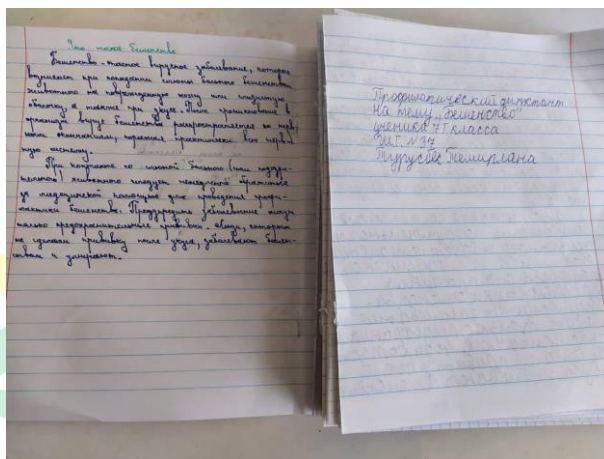 Что такое бешенство
Бешенство - тяжелое вирусное заболевание, которое
возникает при попадании слюны больного бешенством
животного на поврежденную кожу или слизистую
оболочку, а также при укусе. После проникновения в
организм вирус бешенства распространяется по
нервную систему.
При контакте со слюной больного (или подозри-
тельного) животного следует немедленно обратиться
за медицинской помощью для проведения профи-
лактики бешенства. Предупредить заболевание могут
только предохранительные прививки. Люди, которые
не сделали прививку после укуса, заболевают бешен-
ством и умирают.
Профилактический диктант
На тему "Бешенство"
ученика 7Г класса
ШГ №37
Турусбек Темирлана